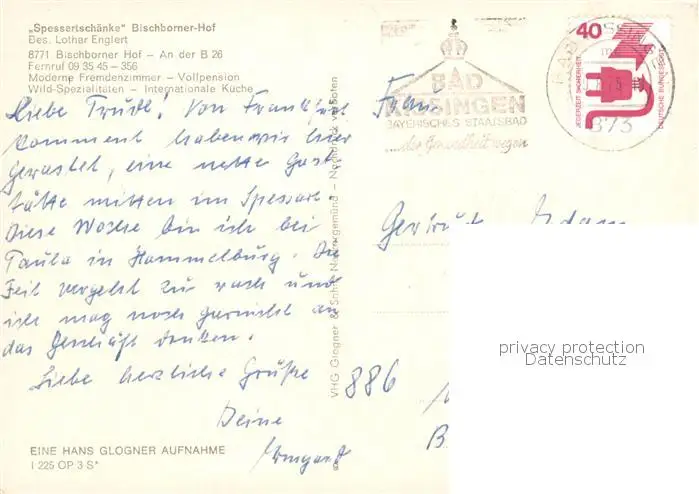 „Spessartschänke" Bischborner-Hof
Bes. Lothar Englert
8771 Bischborner Hof – An der B 26
Fernruf 09 35 45 – 356
Moderne Fremdenzimmer – Vollpension
Wild-Spezialitäten – Internationale Küche
Liebe Trudl! Von Frankfurt
kommend haben wir hier
gerastet, eine nette Gast
stätte mitten im Spessart.
Diese Woche bin ich bei
Paula in Hammelburg. Die
Zeit vergeht zu rasch und
ich mag noch garnicht an
das Geschäft denken.
Liebe herzliche Grüße
Deine
Irmgard
EINE HANS GLOGNER AUFNAHME
I 225 OP 3 S*
VHG Glogner & Sohn Nachdruck verboten
BAD
KISSINGEN
BAYERISCHES STAATSBAD
...der Gesundheit wegen
BAD KISSINGEN
873
40
JEDERZEIT SICHERHEIT
DEUTSCHE BUNDESPOST
Frau
886
B
privacy protection
Datenschutz